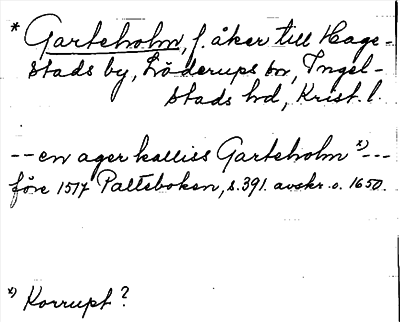 * Garteholm, f. åker till Hage-
stads by, Löderups sn, Ingel-
stads hd, Krist. l.
-- en ager kalliss Garteholm x) ---
före 1517 Palteboken, s. 391. avskr. o. 1650.
x) Korrupt?